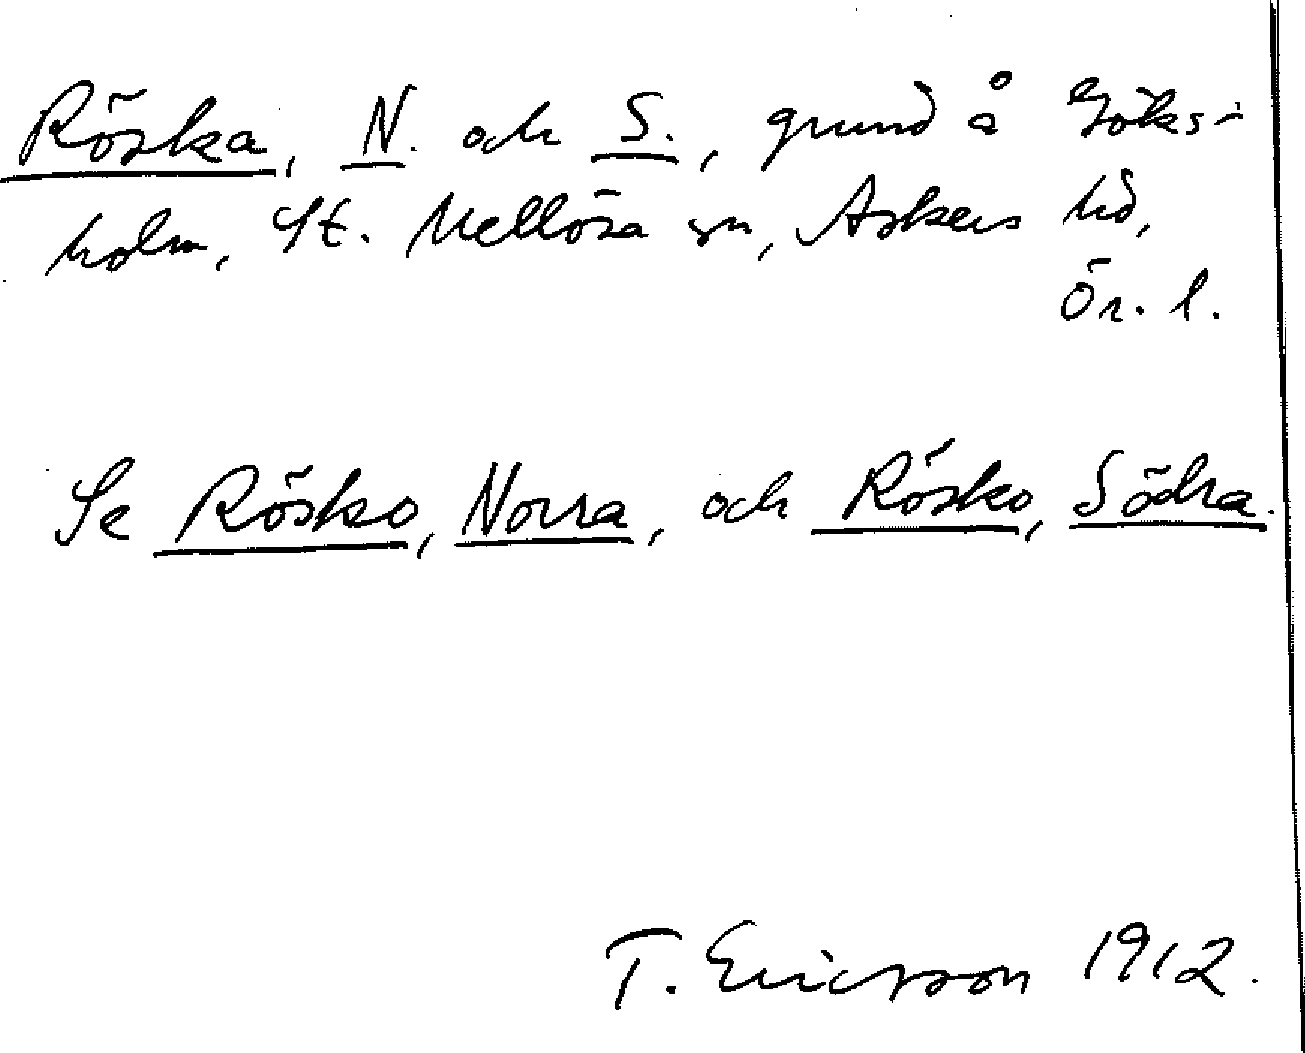 Röska, N. och S., grund å Göks-
holm, St. Mellösa sn, Askers hd,
Ör. l.
Se Rösko, Norra, och Rösko, Södra.
T. Ericsson 1912.